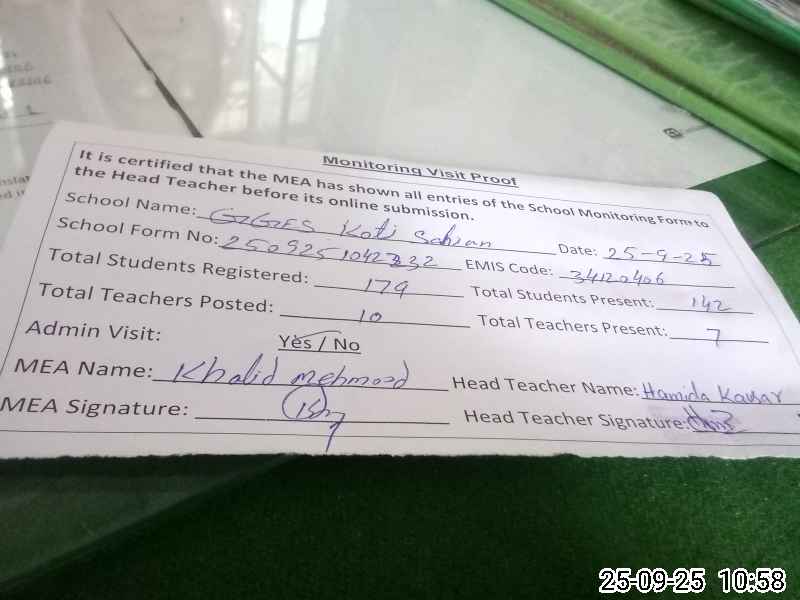 Monitoring Visit Proof
It is certified that the MEA has shown all entries of the School Monitoring Form to
the Head Teacher before its online submission.
School Name: GGES Koti Sabian Date: 25-9-25
School Form No: 2509251042332 EMIS Code: 34120406
Total Students Registered: 179 Total Students Present: 142
Total Teachers Posted: 10 Total Teachers Present: 7
Admin Visit: Yes / No
MEA Name: Khalid mehmood Head Teacher Name: Hamida Kausar
MEA Signature: Head Teacher Signature:
25-09-25 10:58